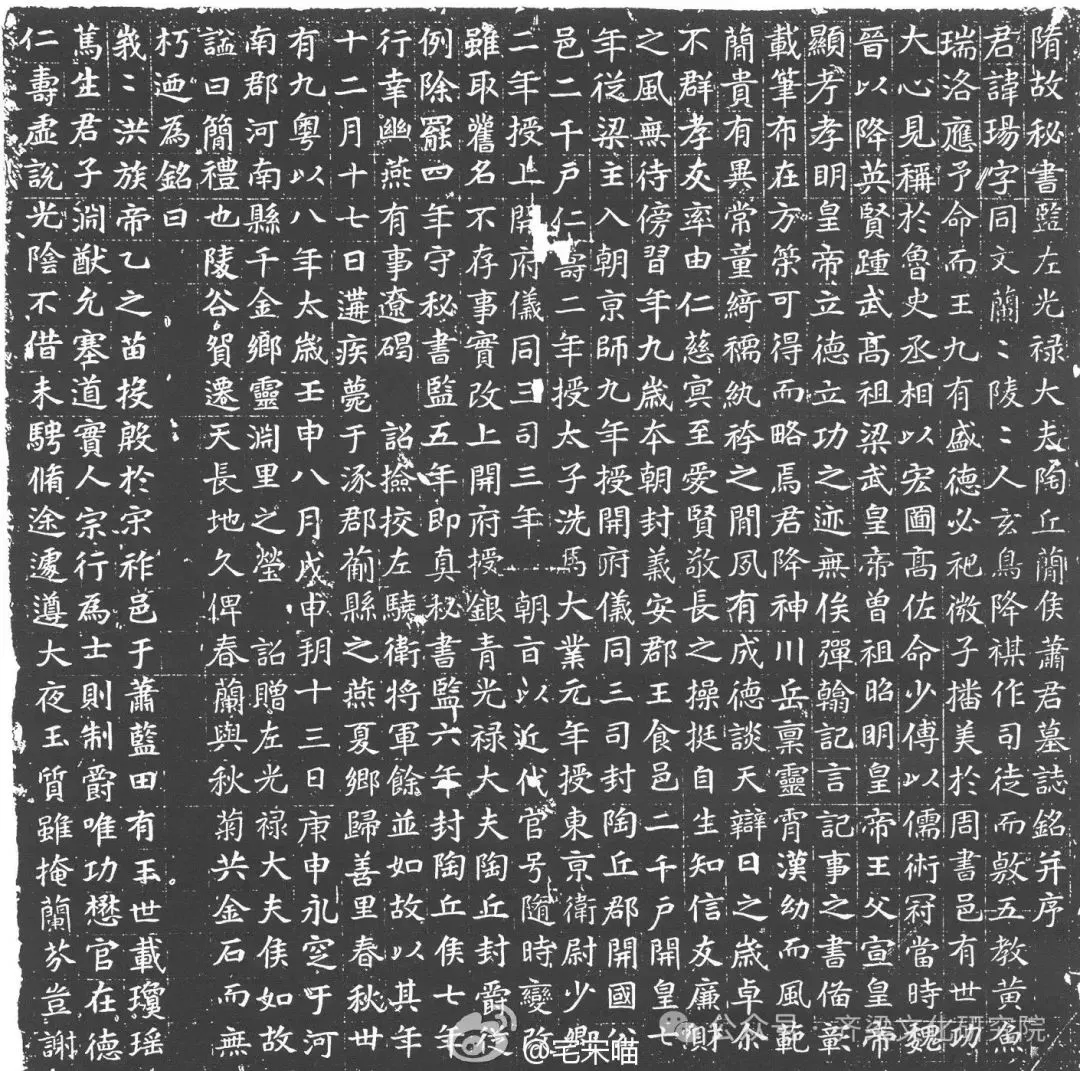 隋故秘書監左光禄大夫陶丘蕳侯蕭君墓誌銘并序
君諱瑒字同文蘭〻陵〻人玄鳥降祺作司徒而敷五教黄魚
瑞洛應予命而王九有盛德必祀微子播美於周書邑有世功
大心見稱於魯史丞相以宏圖髙佐命少傅以儒術冠當時魏
晉以降英賢踵武髙祖梁武皇帝曽祖昭明皇帝王父宣皇帝
顯考孝明皇帝立德立功之迹無俟彈翰記言記事之書俻彰
載筆布在方筞可得而略焉君降神川岳禀靈霄漢幼而風範
簡貴有異常童綺襦紈袴之閒夙有成德談天辯日之歳卓尒
不群孝友率由仁慈寘至愛賢敬長之操挺自生知信友廉財
之風無待傍習年九歳夲朝封義安郡王食邑二千戸開皇七
年従梁主入朝京師九年授開府儀同三司封陶丘郡開國公
邑二千戸仁壽二年授太子洗馬大業元年授東京衛尉少卿
二年授上開府儀同三司三年 朝旨以近代官号隨時變改
雖取舊名不存事實改上開府授銀青光禄大夫陶丘封爵後
例除罷四年守秘書監五年即真秘書監六年封陶丘侯七年
行幸幽燕有事遼碣 詔撿挍左驍衛将軍餘並如故以其年
十二月十七日遘疾薨于涿郡薊縣之燕夏鄉歸善里春秋卅
有九粤以八年太歳壬申八月戊申朔十三日庚申永窆于河
南郡河南縣千金鄉靈淵里之塋 詔贈左光禄大夫侯如故
謚曰簡禮也陵谷貿遷天長地久俾春蘭與秋菊共金石而無
朽廼為銘曰
峩〻洪族帝乙之苗投殷於宗祚邑于蕭藍田有玉世載瓊瑶
篤生君子淵猷允塞道賔人宗行為士則制爵唯功懋官在德
仁壽虚説光陰不借未騁脩途遽遵大夜玉質雖掩蘭芬豈謝
公众号·齐梁文化研究院
@宅朱喵